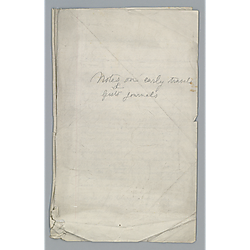 Notes on early travels
&
Gold Journals